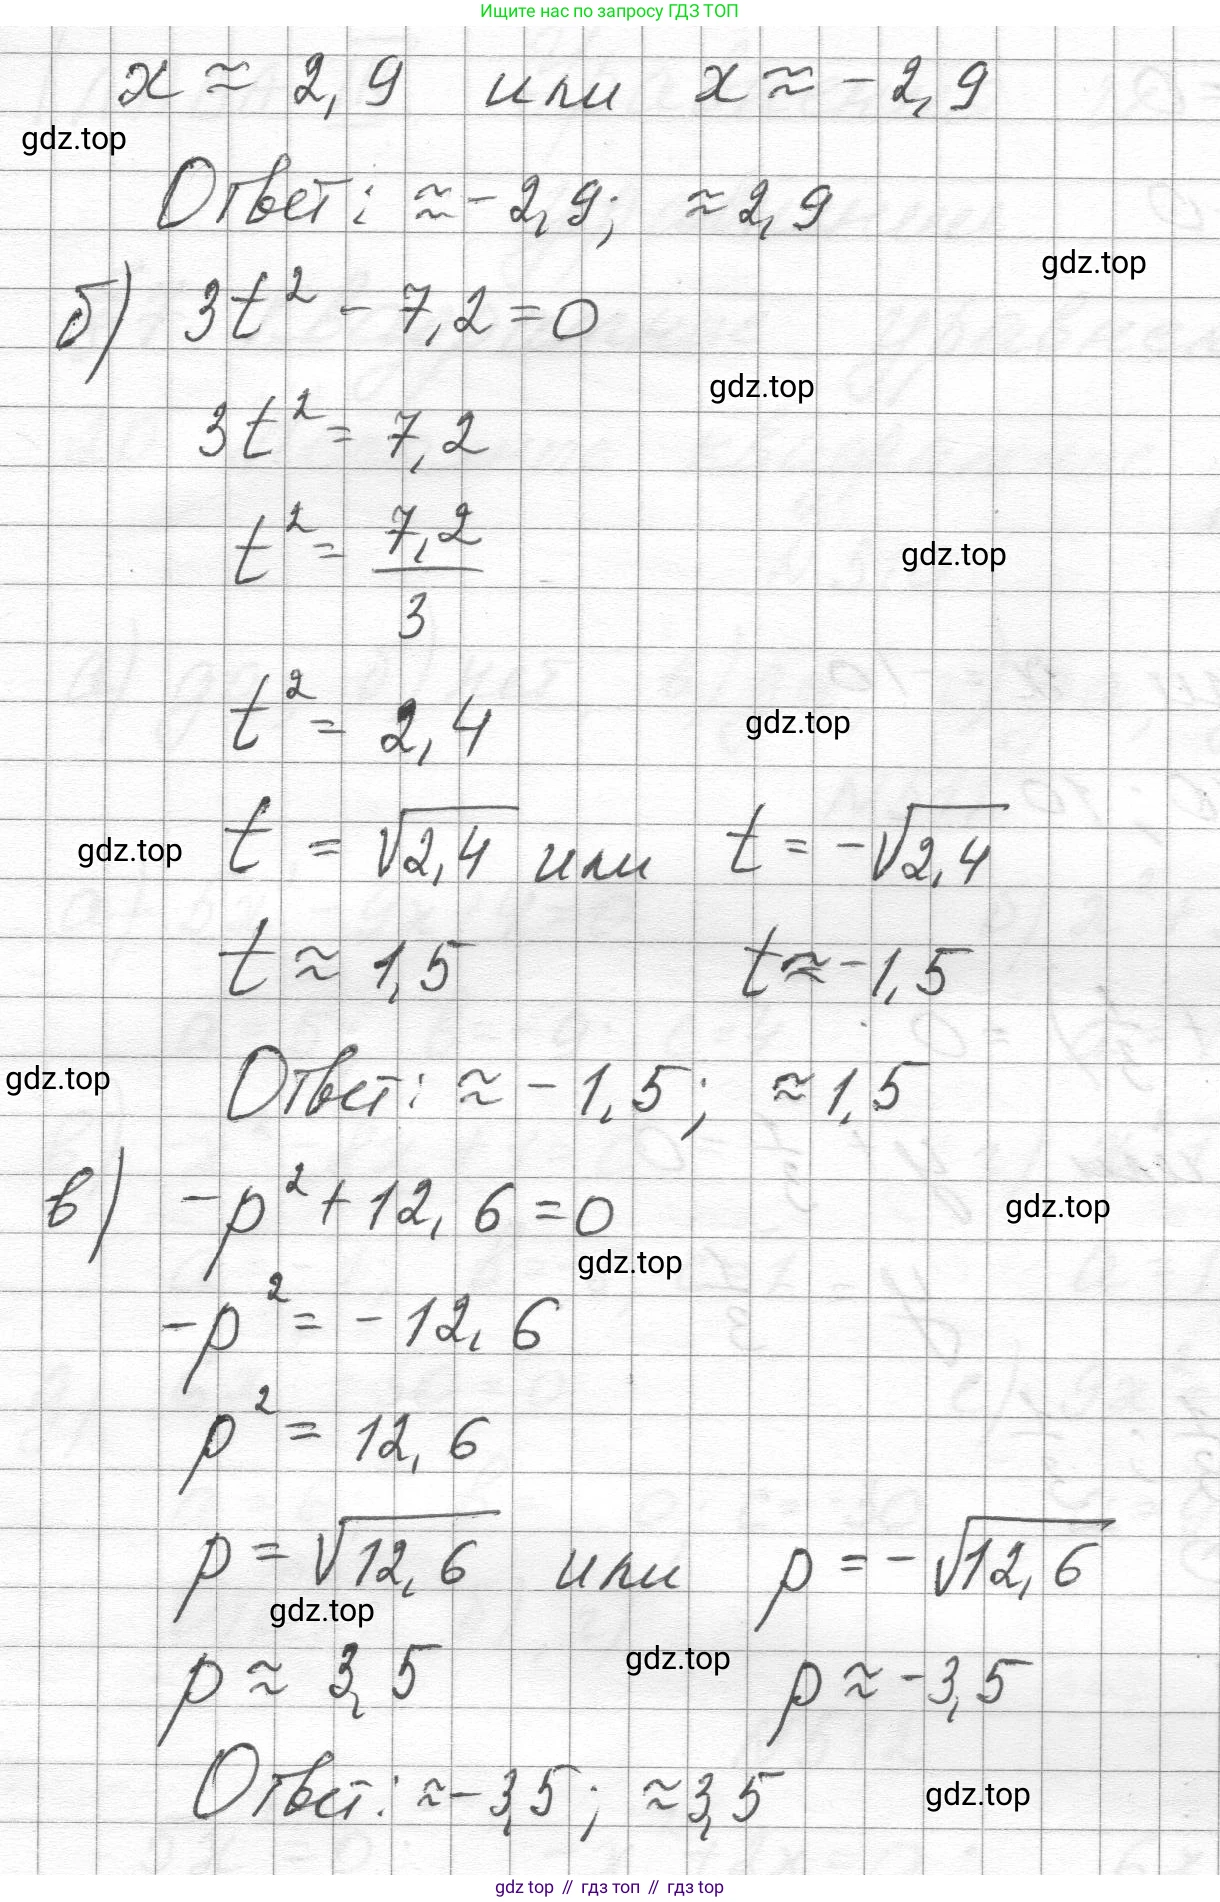 Ищите нас по запросу ГДЗ ТОП
x ≈ 2,9 или x ≈ -2,9
gdz.top
Ответ: ≈ -2,9; ≈ 2,9
gdz.top
б) 3t² - 7,2 = 0
gdz.top
3t² = 7,2
t² = 7,2/3
gdz.top
t² = 2,4
gdz.top
t = √2,4 или t = -√2,4
gdz.top
t ≈ 1,5 t ≈ -1,5
gdz.top
Ответ: ≈ -1,5; ≈ 1,5
в) -p² + 12,6 = 0
gdz.top
gdz.top
-p² = -12,6
p² = 12,6
p = √12,6 или p = -√12,6
gdz.top
p ≈ 3,5 p ≈ -3,5
gdz.top
Ответ: ≈ -3,5; ≈ 3,5
gdz.top
gdz top // гдз топ // гдз top